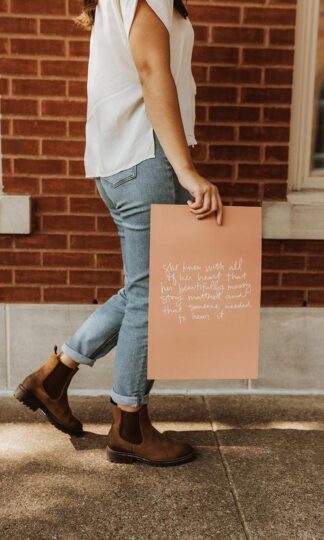 she knew with all
of her heart that
her beautifully messy
story mattered and
that someone needed
to hear it